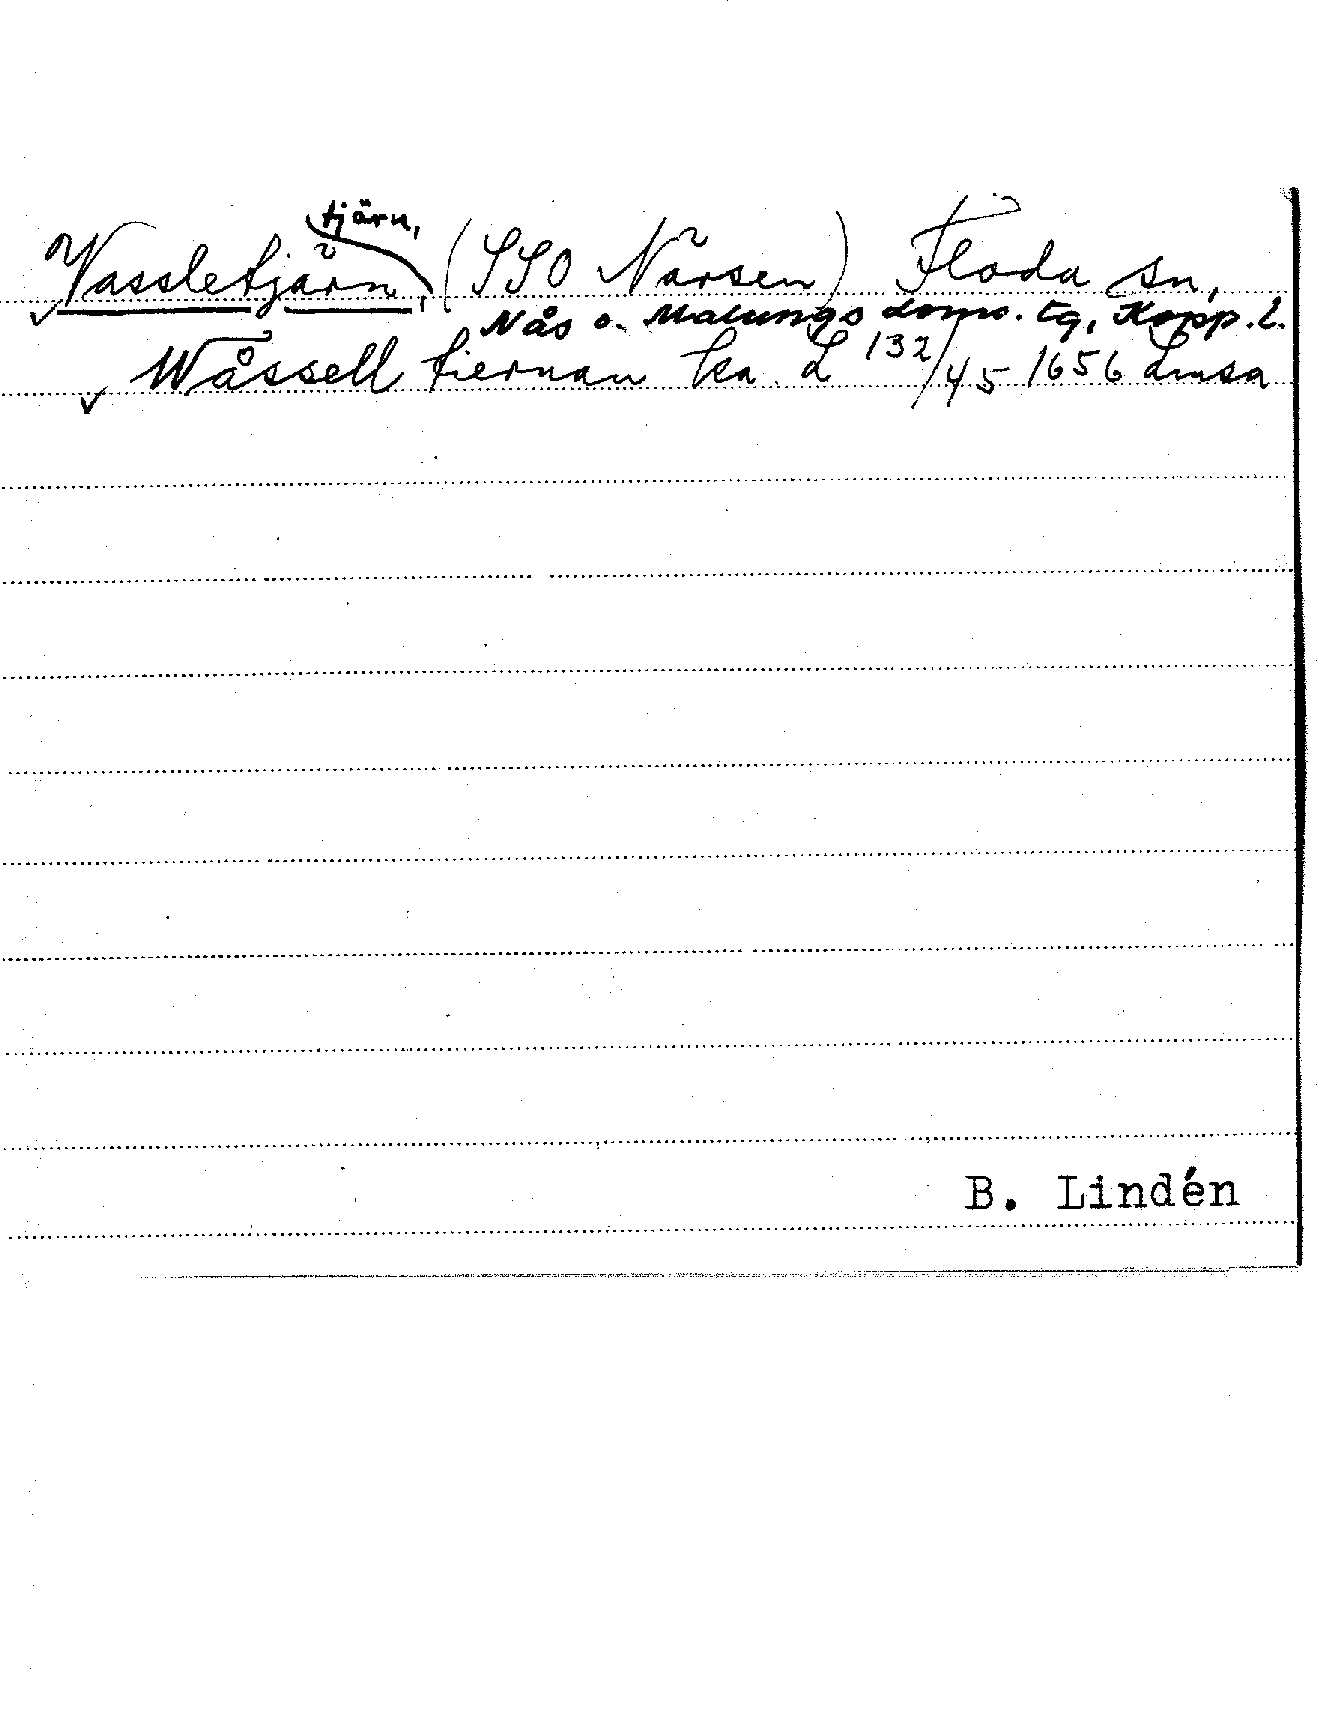 tjärn,
Vassletjärn, (SSO Närsen) Floda sn,
Nås o. Malungs doms. tg, Kopp. l.
Wåssell tiernan ka L 132/45 1656 Lmsa
B. Lindén